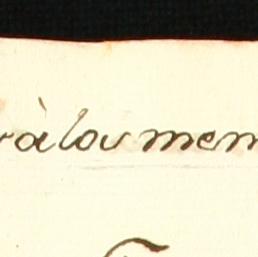 à lou mem